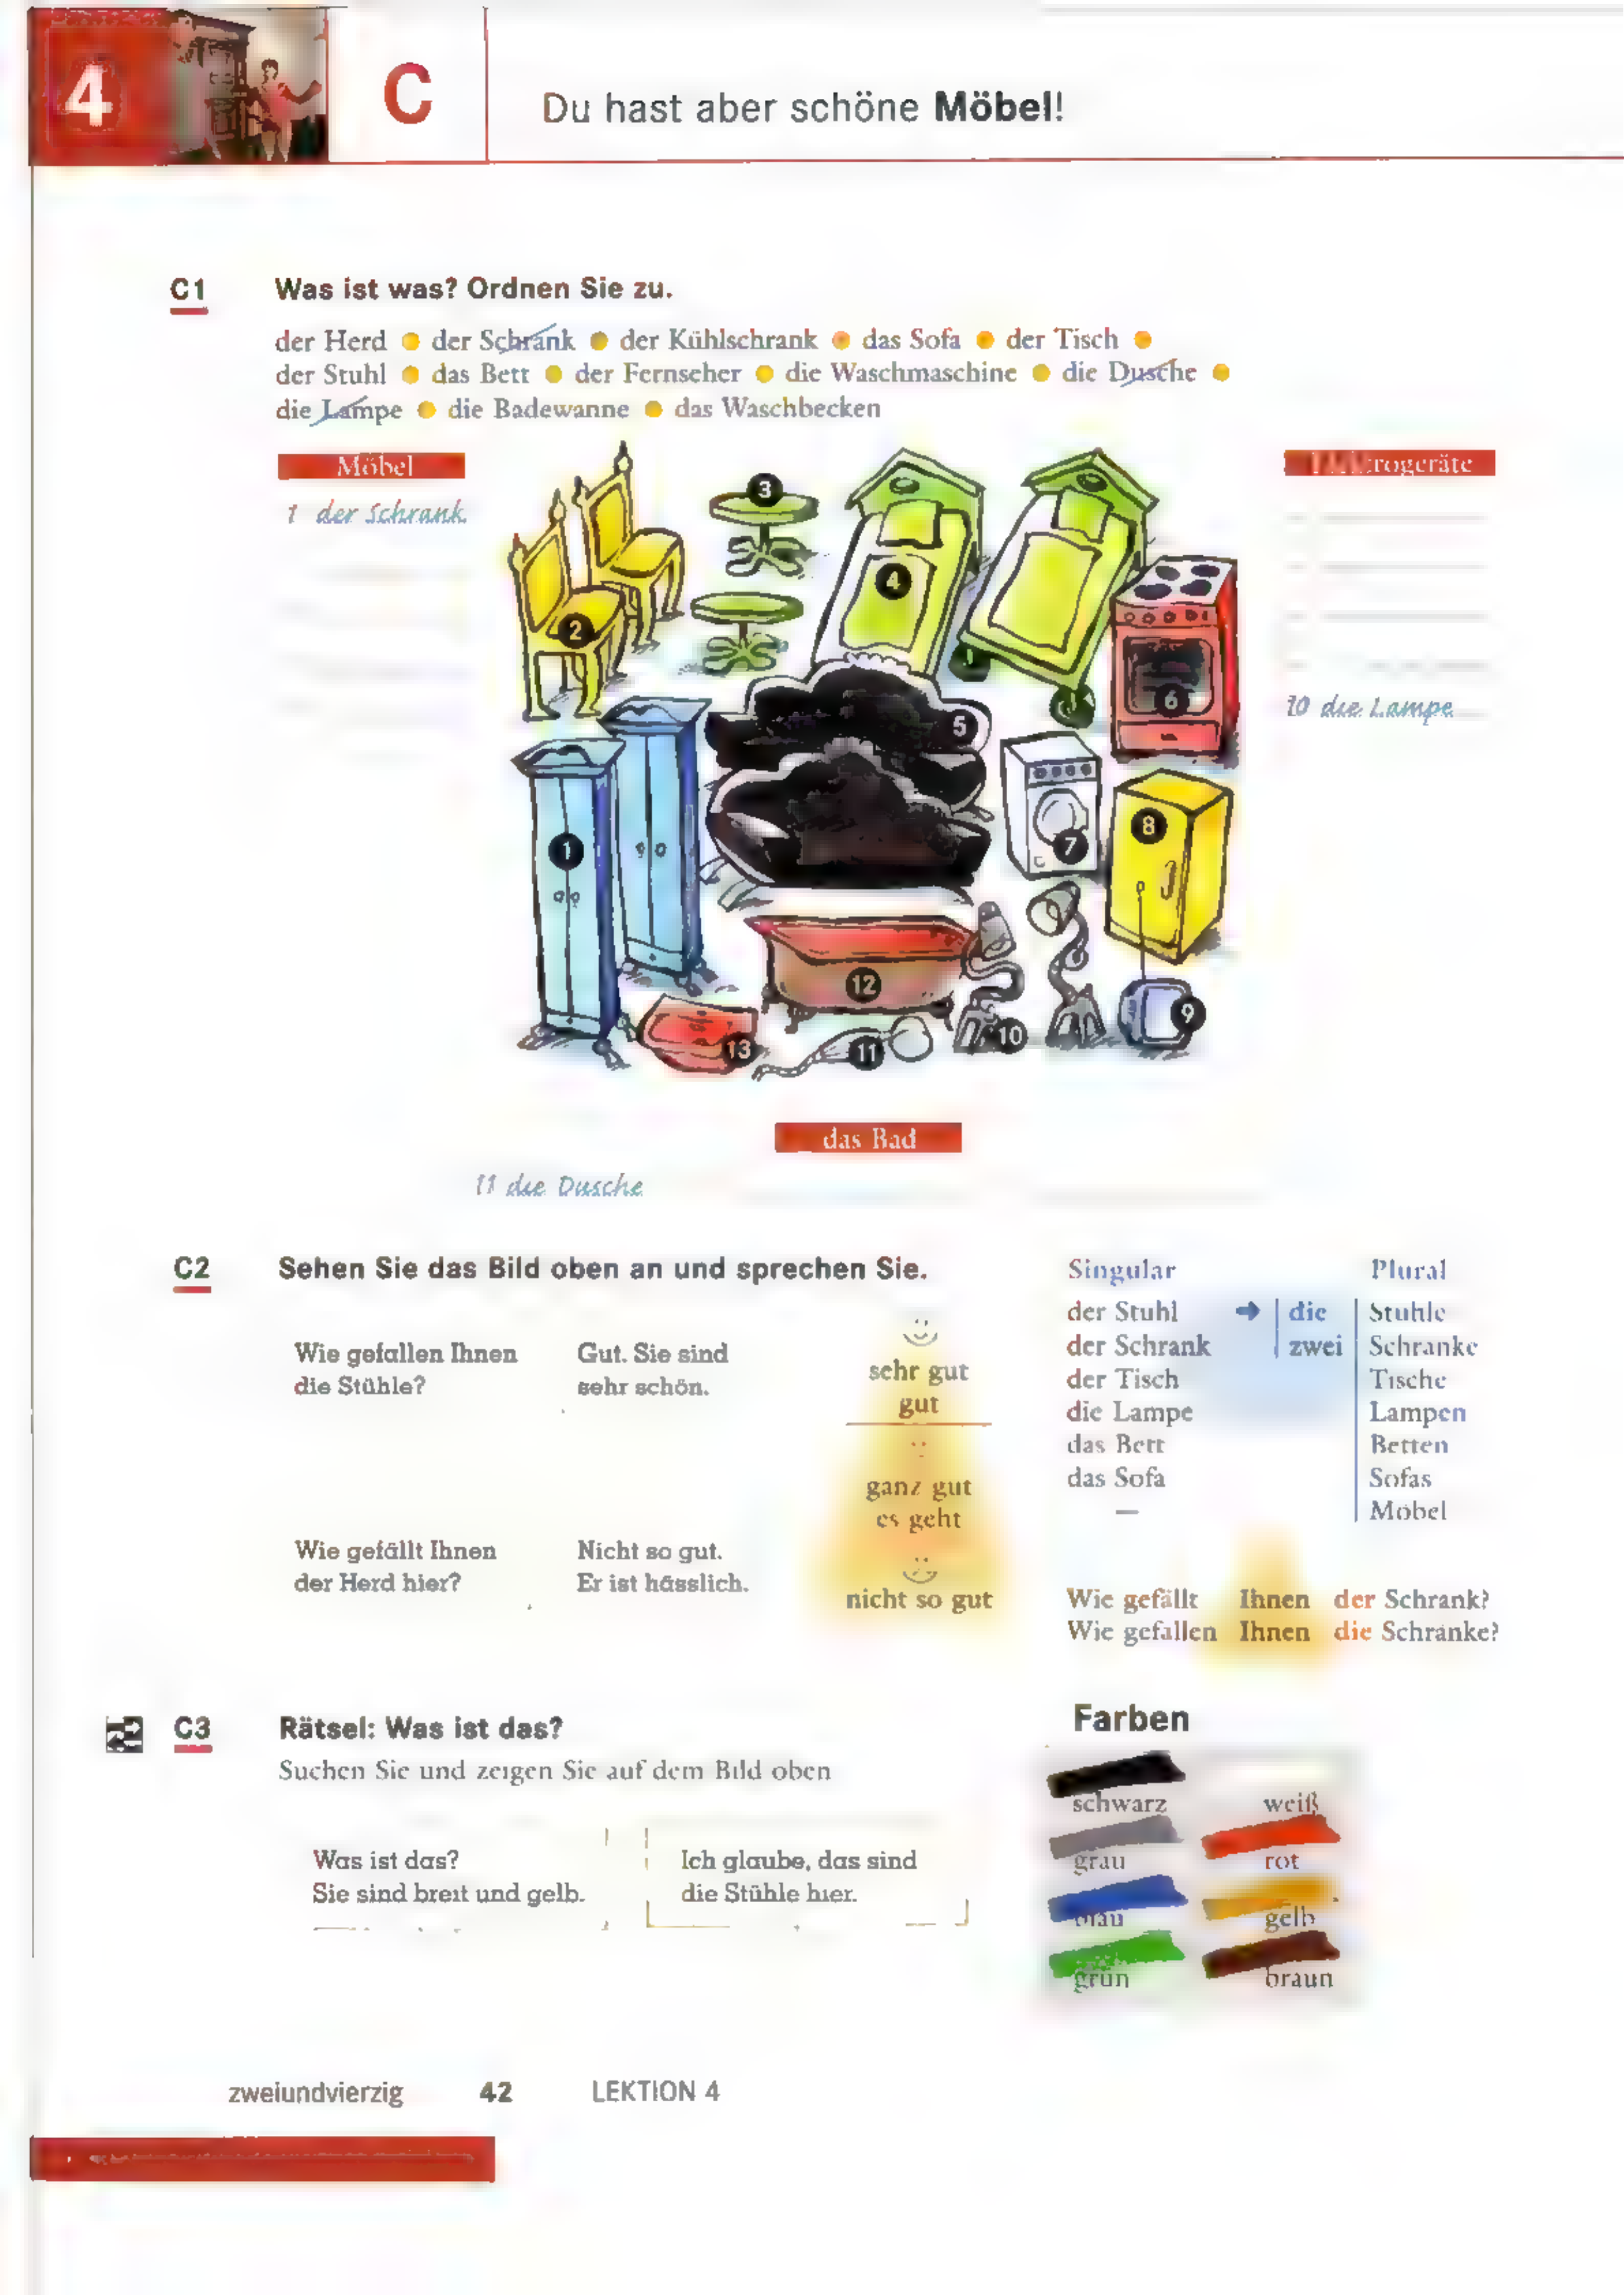 4
C
Du hast aber schöne Möbel!
C1
Was ist was? Ordnen Sie zu.
der Herd ● der Schrank ● der Kühlschrank ● das Sofa ● der Tisch ●
der Stuhl ● das Bett ● der Fernseher ● die Waschmaschine ● die Dusche ●
die Lampe ● die Badewanne ● das Waschbecken
Möbel
1 der Schrank
rogeräte
10 die Lampe
3
4
2
6
5
1
7
8
12
9
13
11
10
das Bad
11 die Dusche
C2
Sehen Sie das Bild oben an und sprechen Sie.
Wie gefallen Ihnen
die Stühle?
Gut. Sie sind
sehr schön.
Wie gefällt Ihnen
der Herd hier?
Nicht so gut.
Er ist hässlich.
sehr gut
gut
ganz gut
es geht
nicht so gut
Singular Plural
der Stuhl → die Stühle
der Schrank zwei Schränke
der Tisch Tische
die Lampe Lampen
das Bett Betten
das Sofa Sofas
— Möbel
Wie gefällt Ihnen der Schrank?
Wie gefallen Ihnen die Schränke?
C3
Rätsel: Was ist das?
Suchen Sie und zeigen Sie auf dem Bild oben
Was ist das?
Sie sind breit und gelb.
Ich glaube, das sind
die Stühle hier.
Farben
schwarz weiß
grau rot
blau gelb
grün braun
zweiundvierzig 42 LEKTION 4